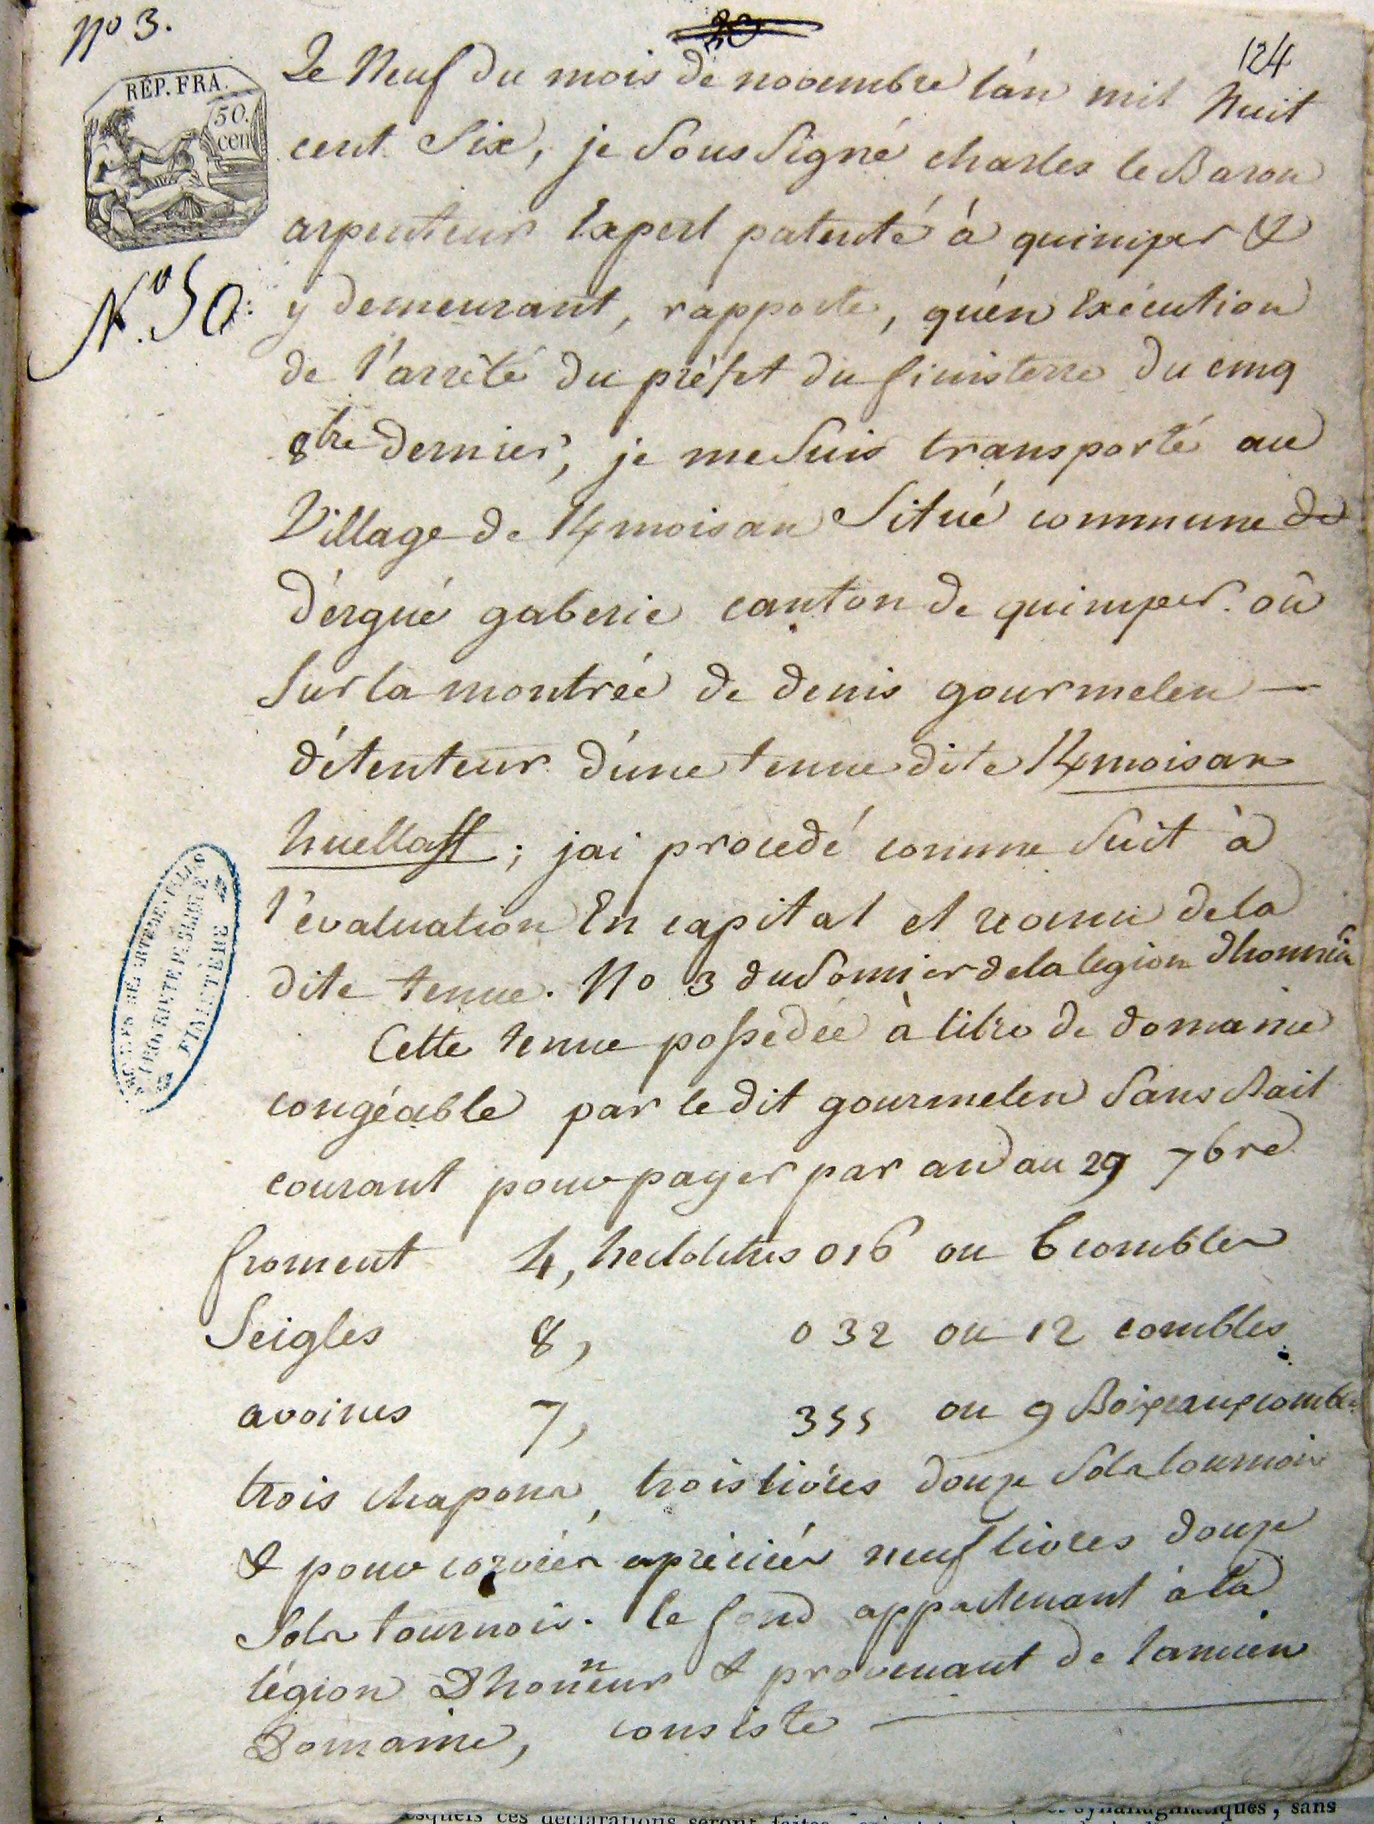 no 3.
20
124
REP. FRA.
50.
cen
No 50.
Le Neuf du mois de novembre l'an mil huit
cent Six, je Sous Signé charles le Baron
arpenteur Expert patenté à quimper &
y demeurant, rapporte, qu'en Exécution
de l'arrêté du préfet du finisterre du cinq
8bre dernier, je me Suis transporté au
Village de K/moisan Situé commune de
d'érgué gaberic canton de quimper. où
Sur la montrée de denis gourmelen —
détenteur d'une tenue dite K/moisan
huellaff ; jai procedé comme Suit à
l'évaluation En capital et revenu dela
dite tenue. No 3 du Somier dela legion dhonneur
Cette tenue possedée à titre de domaine
congéable par le dit gourmelen Sans Bail
courant pour payer par an au 29 7bre
froment 4, hectolitres 016 ou 6 combles
Seigles 8, 032 ou 12 combles
avoines 7, 355 ou 9 Boisseaux combles
trois chapons, trois livres douze Sols tournois
& pour corvées apréciées neuf livres douze
Sols tournois. le fond appartenant à la
légion Dhonneur & provenant de l'ancien
Domaine, consiste
ARCHIVES DÉPARTEMENTALES
PROPRIÉTÉ PUBLIQUE
FINISTÈRE
esquels ces déclarations seront faites
synallagmatiques, sans